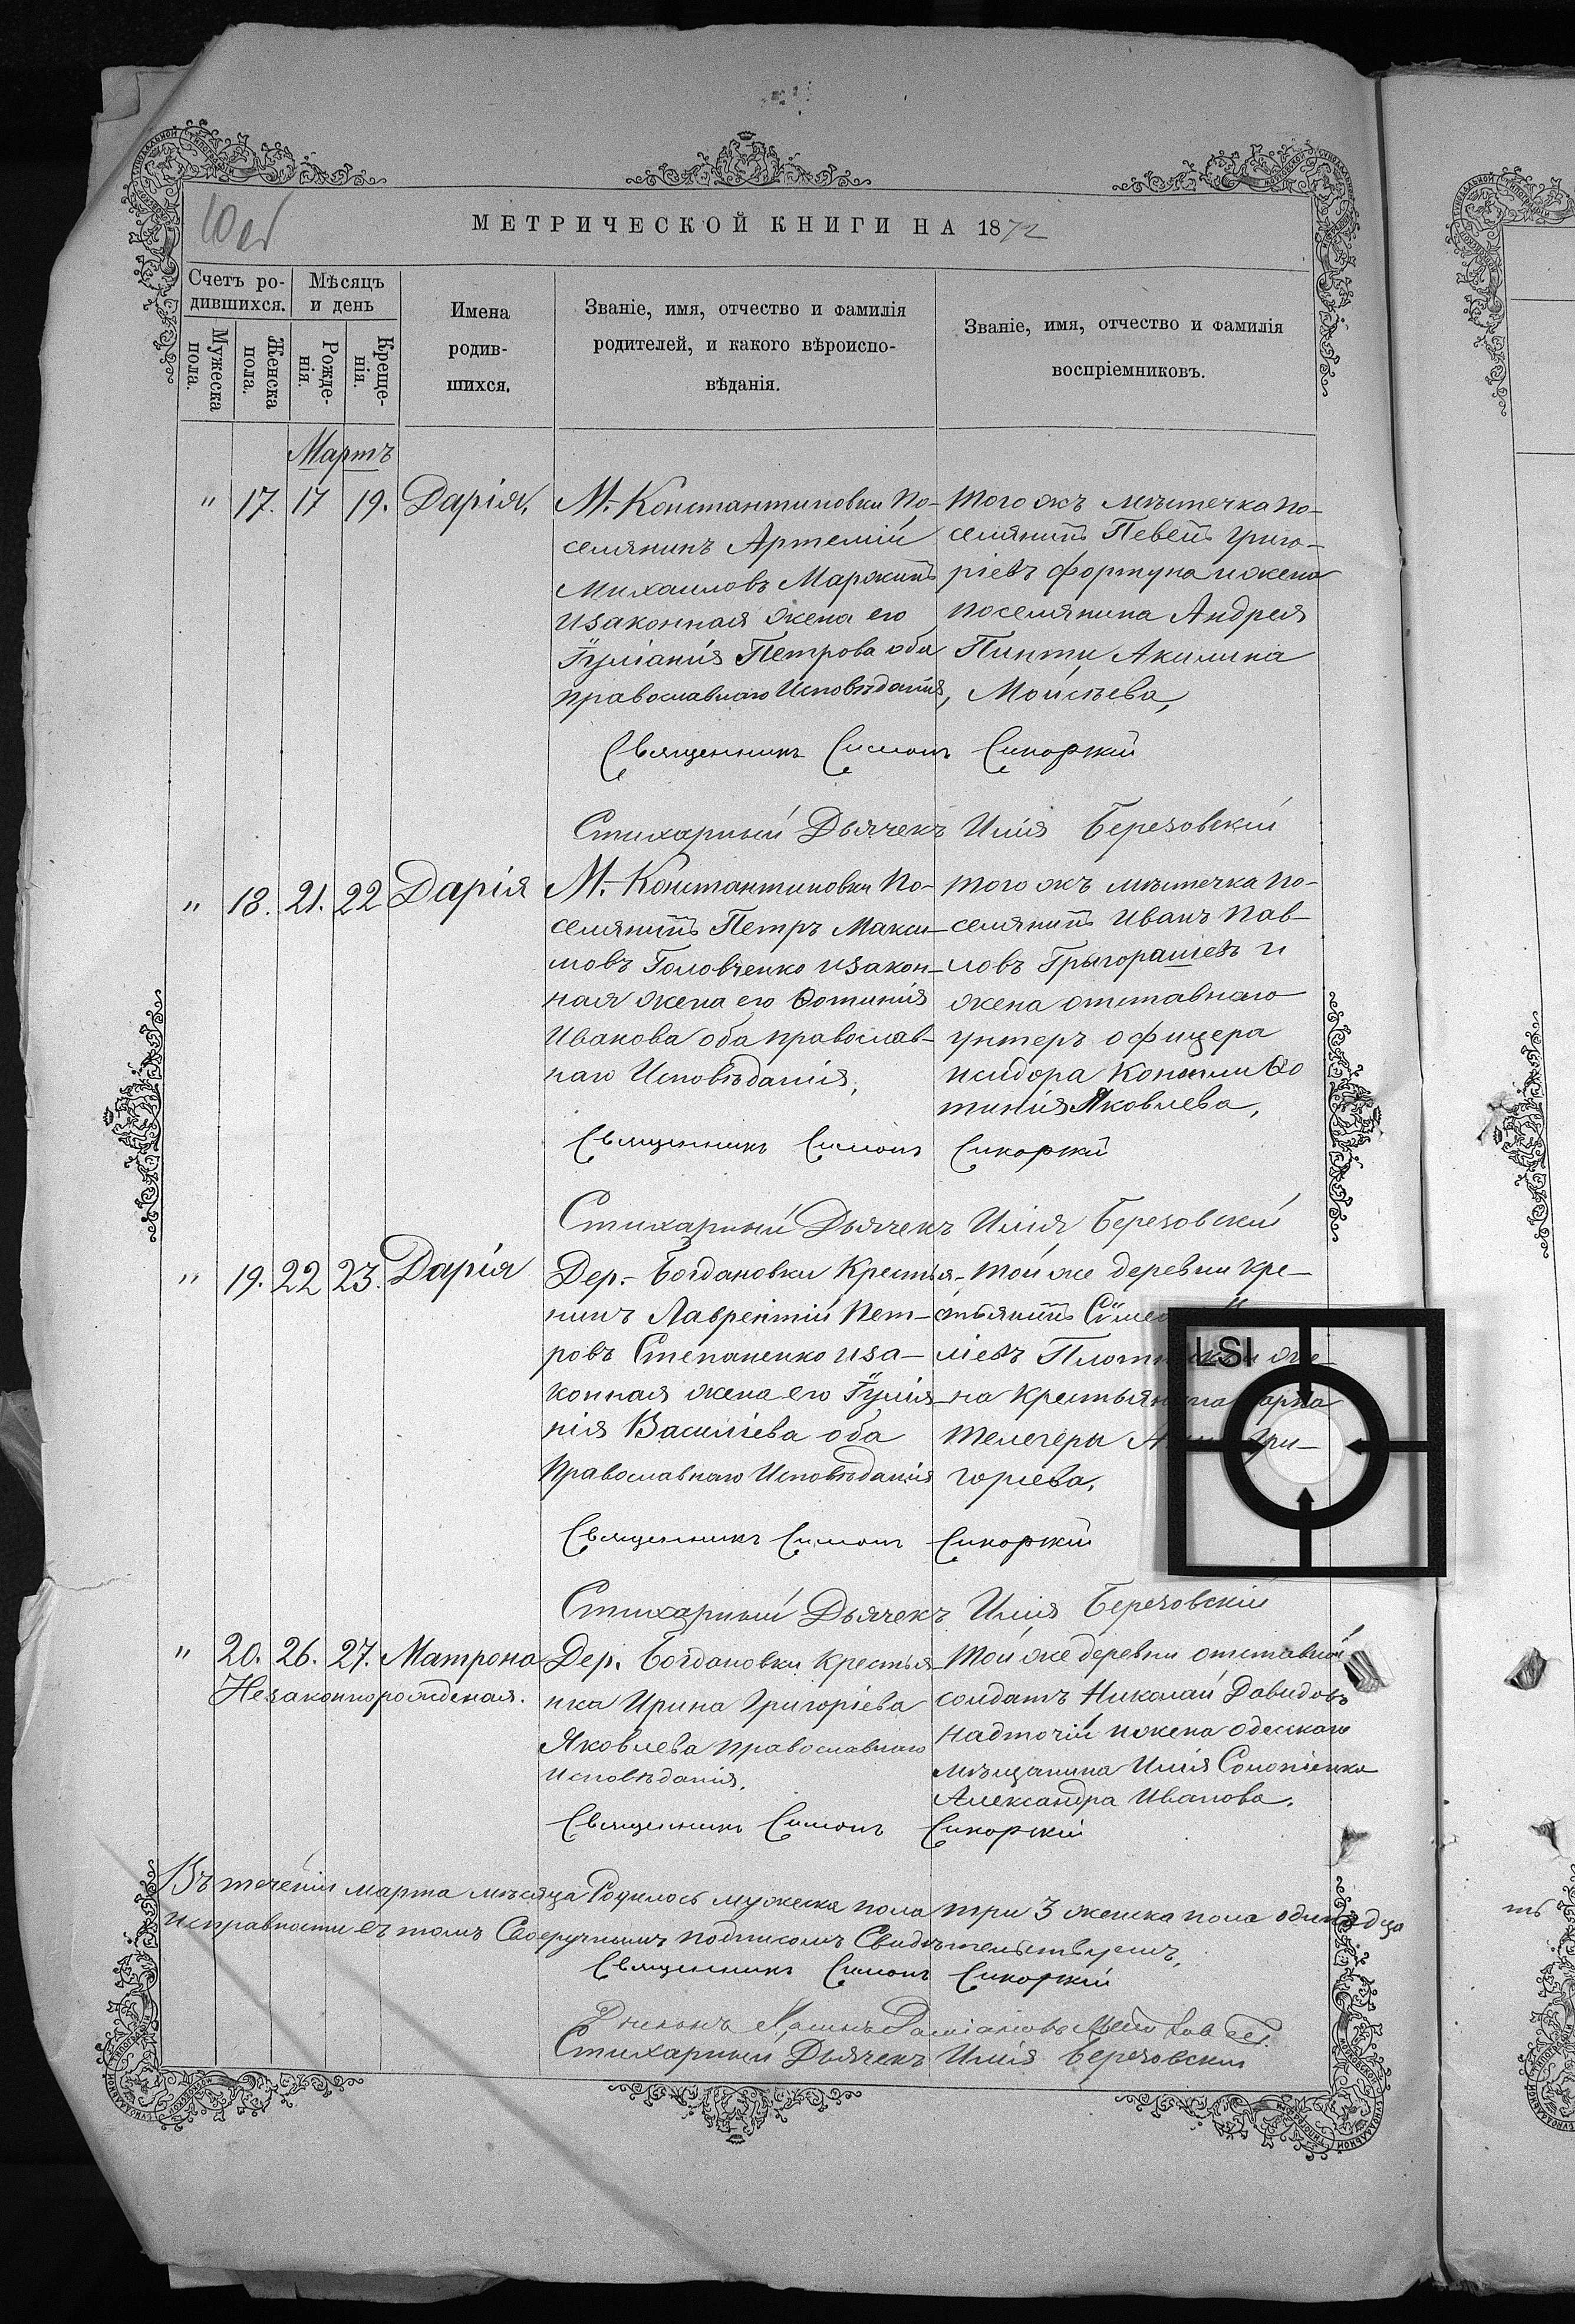 МЕТРИЧЕСКОЙ КНИГИ НА 1872
Счетъ ро-
дившихся.
Мѣсяцъ
и день
Мужеска
пола.
Женска
пола.
Рожде-
нія.
Креще-
нія.
Имена
родив-
шихся.
Званіе, имя, отчество и фамилія
родителей, и какого вѣроиспо-
вѣданія.
Званіе, имя, отчество и фамилія
воспріемниковъ.
Мартъ
" 17. 17 19. Дарія,
М. Константиновки По-
селянинъ Артемій
Михаиловъ Маржинъ
изаконная жена его
Іуліанія Петрова оба
православнаго Исповѣданія,
того жъ мѣстечка по-
селянинъ Певенъ Григо-
ріевъ Фортуна и жена
поселянина Андрея
Пинти Акилина
Мойсѣева,
Священникъ Симонъ Сикорскій
Стихарный Дьячекъ Илія Березовскій
" 18. 21. 22 Дарія
М. Константиновки По-
селянинъ Петръ Макси-
мовъ Головченко изакон-
ная жена его Ѳотинія
Иванова оба православ-
наго Исповѣданія,
того жъ мѣстечка по-
селянинъ Иванъ Пав-
ловъ Грыгорашевъ и
жена отставнаго
унтеръ офицера
исидора Ѳо
тинія Яковлева,
Священникъ Симонъ Сикорскій
Стихарный Дьячекъ Илія Березовскій
" 19. 22 23. Дарія
Дер. Богдановки Крестья-
нинъ Лаврентій Пет-
ровъ Степаненко иза-
конная жена его Іулія-
нія Василіева оба
Православнаго Исповѣданія
той же деревни кре-
стьянинъ
ліевъ же-
на крестьянина
Телегеры Гри-
горіева,
LSI
Священникъ Симонъ Сикорскій
Стихарный Дьячекъ Илія Березовскій
" 20. 26. 27. Матрона
Незаконнорожденая.
Дер. Богдановки крестья-
нка Ирина Григоріева
Яковлева православнаго
исповѣданія.
той же деревни отставной
солдатъ Николай Давидовъ
Надточій и жена одескаго
мѣщанина Илія
Александра Иванова.
Священникъ Симонъ Сикорскій
Въ теченіи марта мѣсяца Родилось мужеска пола три 3 женска пола одинадца
исправности въ томъ Своеручнымъ подписомъ Свидѣтельствуемъ,
Священникъ Симонъ Сикорскій
Стихарный Дьячекъ Илія Березовскій
ть